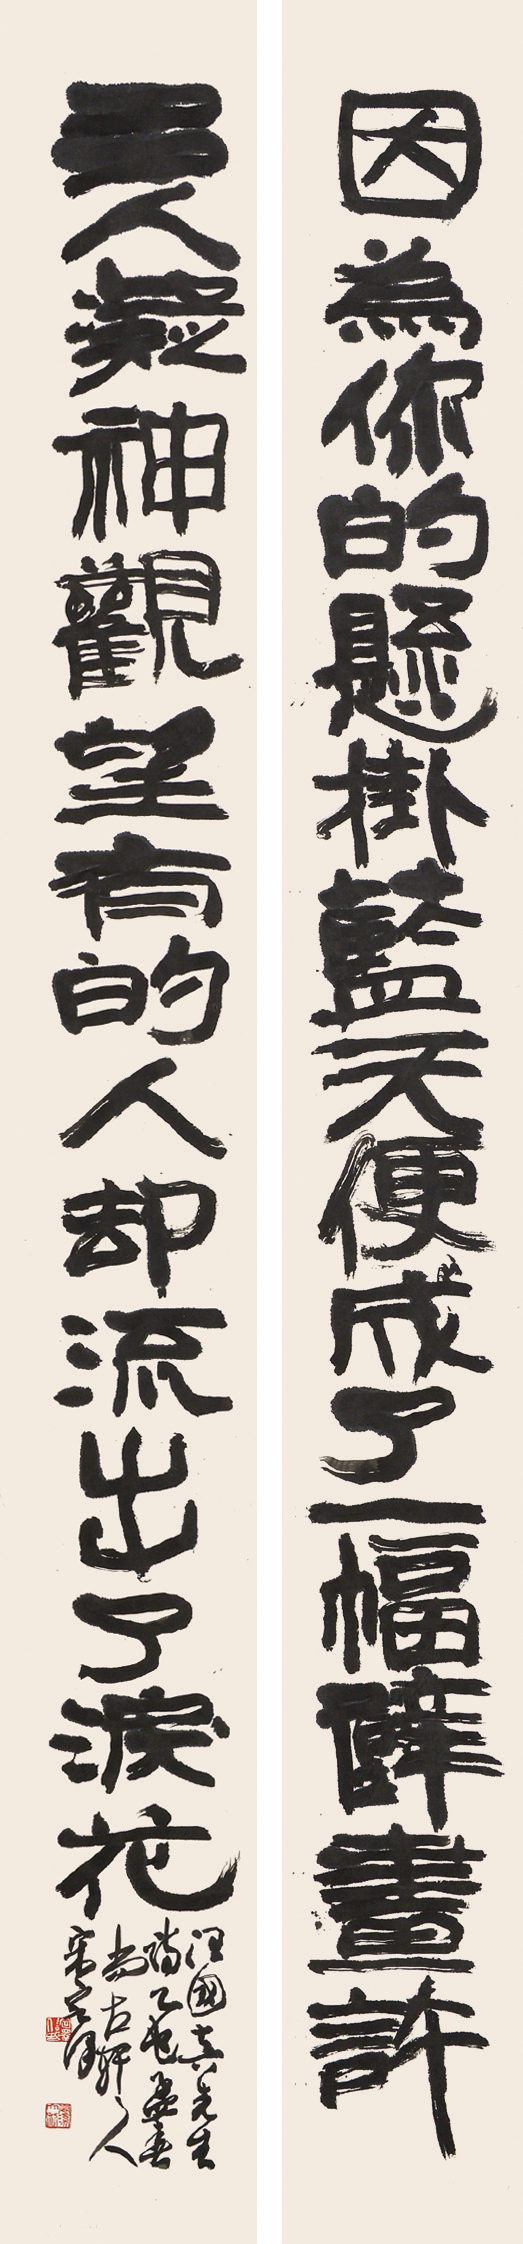 因為你的懸掛藍天便成了一幅壁畫許
多人凝神觀望有的人却流出了淚花
汪國真先生
詩乙巳孟春
尚古軒之人